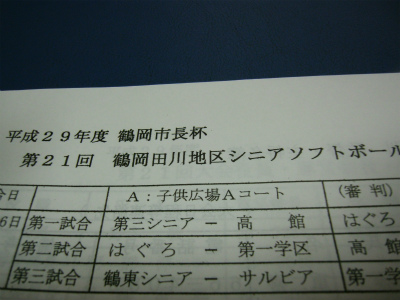 平成29年度 鶴岡市長杯
第21回 鶴岡田川地区シニアソフトボール
日 A:子供広場Aコート (審判)
6日 第一試合 第三シニア － 高館 はぐろ
第二試合 はぐろ － 第一学区 高館
第三試合 鶴東シニア － サルビア 第一学